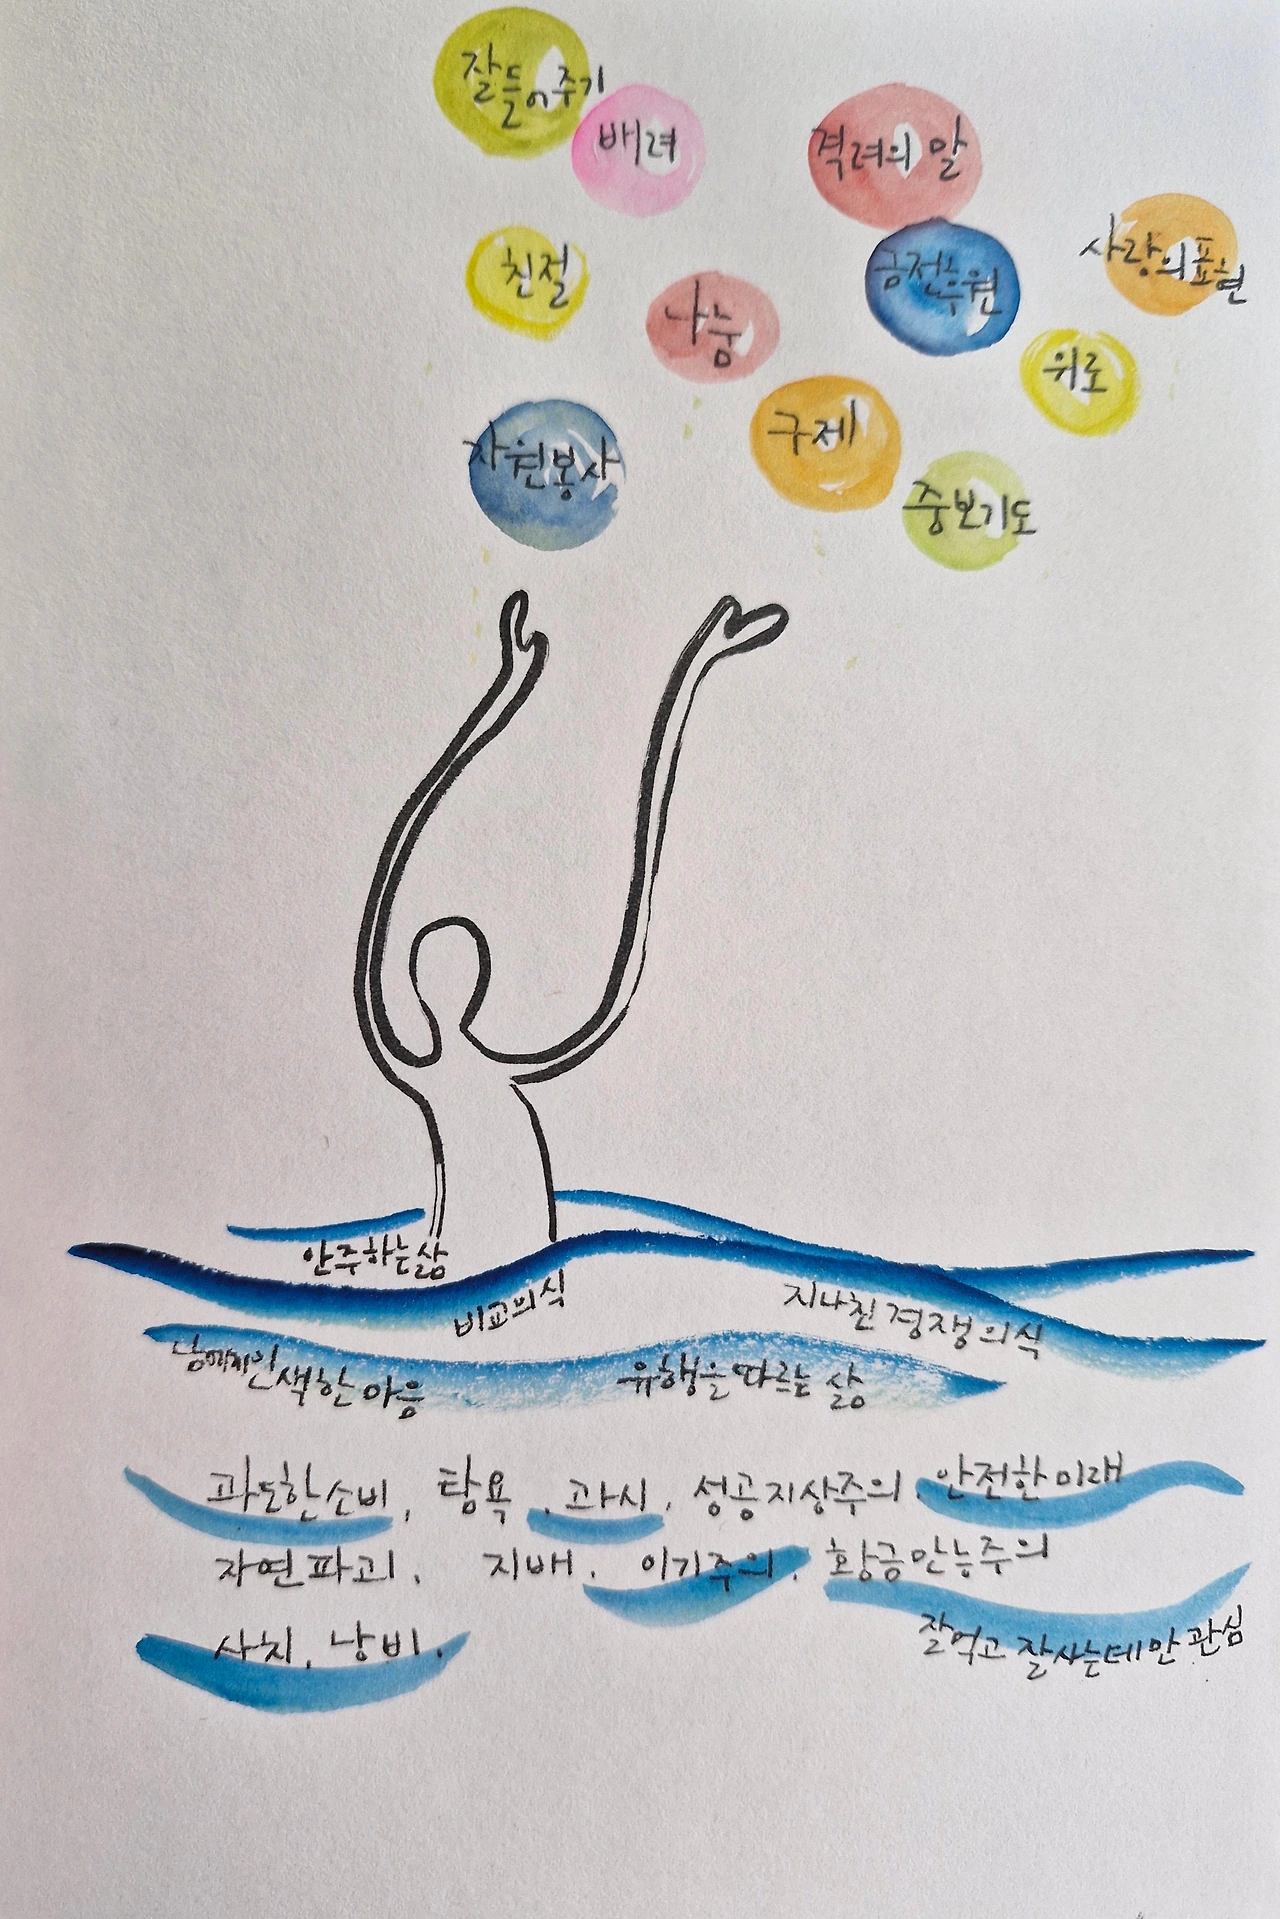 잘들어주기
배려
격려의 말
사랑의표현
친절
금전후원
나눔
위로
구제
자원봉사
중보기도
안주하는삶
비교의식
지나친 경쟁의식
남에게인색한 마음
유행을 따르는 삶
과도한소비, 탐욕, 과시, 성공지상주의, 안전한미래
자연파괴, 지배, 이기주의, 황금만능주의
잘먹고 잘사는데만 관심
사치, 낭비,